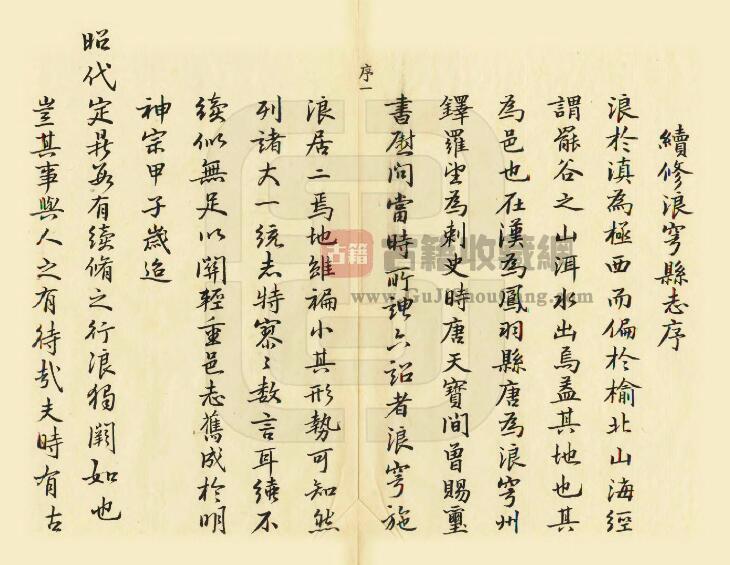 續修浪穹縣志序
浪於滇為極西而偏於榆北山海經
謂罷谷之山洱水出焉盖其地也其
為邑也在漢為鳳羽縣唐為浪穹州
鐸羅望為刺史時唐天寶間曾賜璽
書慰問當時所謂六詔者浪穹施
序一
浪居二焉地雖褊小其形勢可知然
列諸大一統志特寥〻數言耳續不
續似無足以關輕重邑志舊成於明
神宗甲子歲迨
昭代定鼎有續脩之行浪獨闕如也
豈其事與人之有待哉夫時有古
古籍
古籍收藏網
www.GuJiShouCang.com